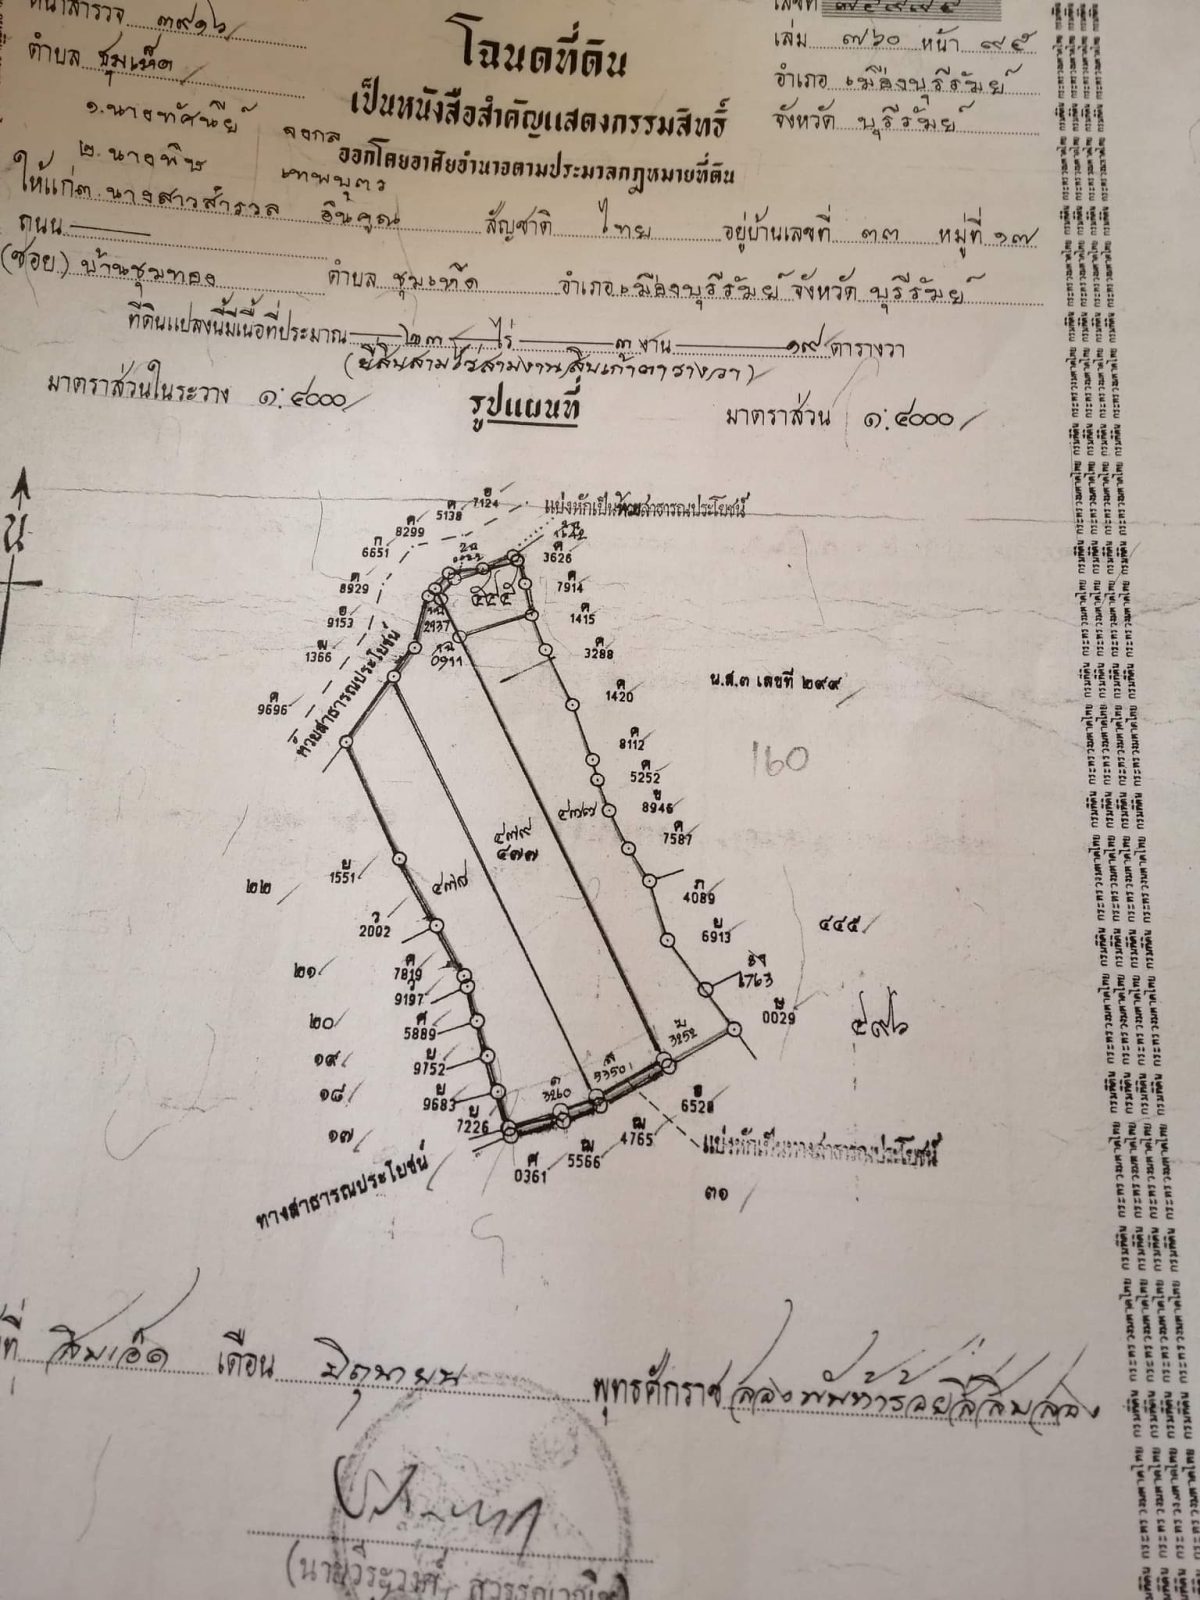 หน้าสำรวจ ๓๙๑๖
เลขที่ ๗๕๙๙๕
ตำบล ชุมเห็ด
โฉนดที่ดิน
เล่ม ๗๖๐ หน้า ๙๕
เป็นหนังสือสำคัญแสดงกรรมสิทธิ์
อำเภอ เมืองบุรีรัมย์
จังหวัด บุรีรัมย์
ออกโดยอาศัยอำนาจตามประมวลกฎหมายที่ดิน
๑.นางทัศนีย์ จงกล
๒.นางพิช เทพบุตร
ให้แก่ ๓.นางสาวสำรวล อินคูณ สัญชาติ ไทย อยู่บ้านเลขที่ ๓๓ หมู่ที่ ๑๗
ถนน
(ซอย) บ้านชุมทอง ตำบล ชุมเห็ด อำเภอ เมืองบุรีรัมย์ จังหวัด บุรีรัมย์
ที่ดินแปลงนี้มีเนื้อที่ประมาณ ๒๓ ไร่ ๓ งาน ๑๙ ตารางวา
(ยี่สิบสามไร่สามงานสิบเก้าตารางวา)
มาตราส่วนในระวาง ๑:๔๐๐๐
รูปแผนที่
มาตราส่วน ๑:๔๐๐๐
น
แบ่งหักเป็นห้วยสาธารณประโยชน์
7124
ค 5138
8299
ก 6651
ค 8929
9153
1366
ค 9696
ค 3626
ค 7914
ค 1415
ค 3288
ค 1420
ค 8112
ค 5252
ย 8946
ค 7587
4089
ย 6913
1763
0029
2937
0911
๕๔๕
ห้วยสาธารณประโยชน์
น.ส.๓ เลขที่ ๒๙๙
160
๔๗๙
๔๗๗
๔๗๗
๔๗๘
๔๔๕
๕๙๖
๒๒
๒๑
๒๐
๑๙
๑๘
๑๗
ย 1551
2002
ค 7819
9197
ศ 5889
ย 9752
ย 9683
ย 7226
3260
53501
3252
6528
ฒ 4765
ฒ 5566
ศ 0361
แบ่งหักเป็นทางสาธารณประโยชน์
ทางสาธารณประโยชน์
๓๑
ที่ สิบเอ็ด เดือน มิถุนายน พุทธศักราช สองพันห้าร้อยสี่สิบสอง